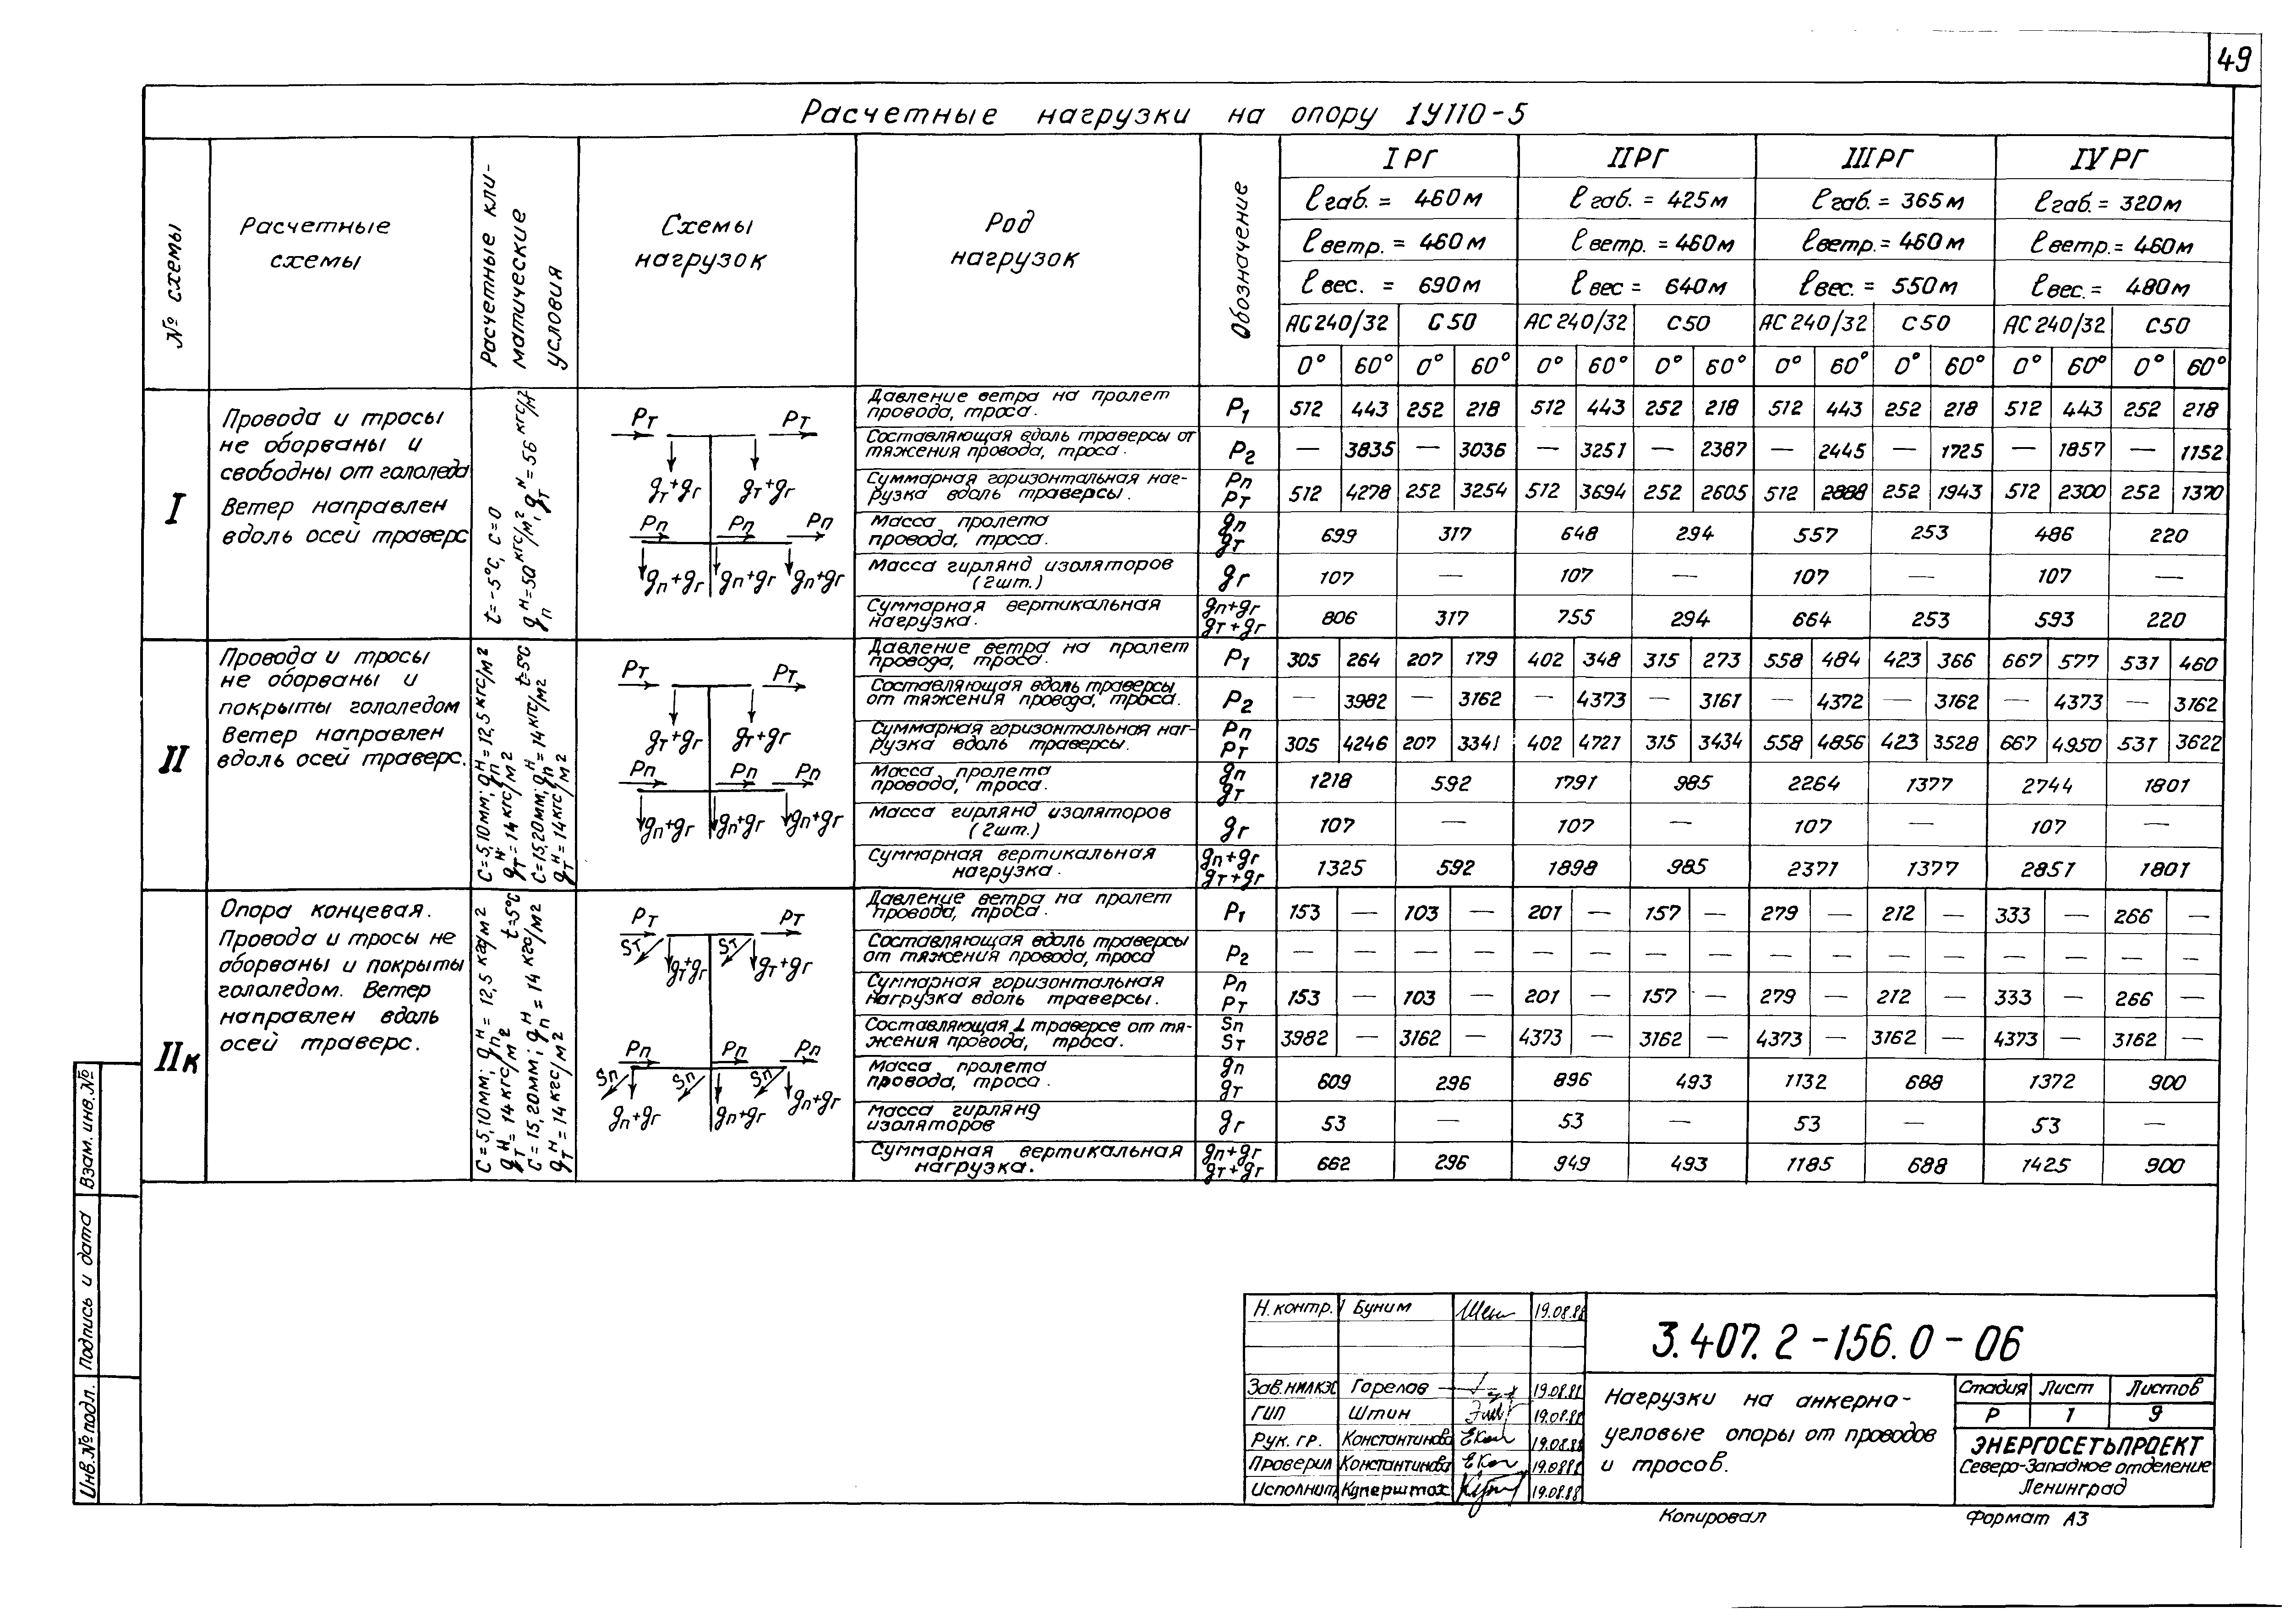 49
Расчетные нагрузки на опору 1У110-5
№ схемы
Расчетные схемы
Расчетные климатические условия
Схемы нагрузок
Род нагрузок
Обозначение
I РГ II РГ III РГ IV РГ
ℓгаб. = 460м ℓгаб. = 425м ℓгаб. = 365м ℓгаб. = 320м
ℓветр. = 460м ℓветр. = 460м ℓветр. = 460м ℓветр. = 460м
ℓвес. = 690м ℓвес = 640м ℓвес. = 550м ℓвес. = 480м
АС240/32 С50 АС240/32 С50 АС240/32 С50 АС240/32 С50
0° 60° 0° 60° 0° 60° 0° 60° 0° 60° 0° 60° 0° 60° 0° 60°
I
Провода и тросы
не оборваны и
свободны от гололеда
Ветер направлен
вдоль осей траверс
t=-5°C, C=0
gпᴴ=50 кгс/м², gтᴴ=56 кгс/м²
Pт Pт
gт+gг gт+gг
Pп Pп Pп
gп+gг gп+gг gп+gг
Давление ветра на пролет провода, троса. P1 512 443 252 218 512 443 252 218 512 443 252 218 512 443 252 218
Составляющая вдоль траверсы от тяжения провода, троса. P2 — 3835 — 3036 — 3251 — 2387 — 2445 — 1725 — 1857 — 1152
Суммарная горизонтальная нагрузка вдоль траверсы. Pп Pт 512 4278 252 3254 512 3694 252 2605 512 2888 252 1943 512 2300 252 1370
Масса пролета провода, троса. gп gт 699 317 648 294 557 253 486 220
Масса гирлянд изоляторов (2шт.) gг 107 — 107 — 107 — 107 —
Суммарная вертикальная нагрузка. gп+gг gт+gг 806 317 755 294 664 253 593 220
II
Провода и тросы
не оборваны и
покрыты гололедом
Ветер направлен
вдоль осей траверс.
C=5,10мм; gпᴴ=12,5 кгс/м²
gтᴴ=14 кгс/м² t=-5°C
C=15,20мм; gпᴴ=14 кгс/м²
gтᴴ=14 кгс/м²
Pт Pт
gт+gг gт+gг
Pп Pп Pп
gп+gг gп+gг gп+gг
Давление ветра на пролет провода, троса. P1 305 264 207 179 402 348 315 273 558 484 423 366 667 577 531 460
Составляющая вдоль траверсы от тяжения провода, троса. P2 — 3982 — 3162 — 4373 — 3161 — 4372 — 3162 — 4373 — 3162
Суммарная горизонтальная нагрузка вдоль траверсы. Pп Pт 305 4246 207 3341 402 4721 315 3434 558 4856 423 3528 667 4950 531 3622
Масса пролета провода, троса. gп gт 1218 592 1791 985 2264 1377 2744 1801
Масса гирлянд изоляторов (2шт.) gг 107 — 107 — 107 — 107 —
Суммарная вертикальная нагрузка. gп+gг gт+gг 1325 592 1898 985 2371 1377 2851 1801
IIк
Опора концевая.
Провода и тросы не
оборваны и покрыты
гололедом. Ветер
направлен вдоль
осей траверс.
C=5,10мм; gпᴴ=12,5 кгс/м²
gтᴴ=14 кгс/м² t=-5°C
C=15,20мм; gпᴴ=14 кгс/м²
gтᴴ=14 кгс/м²
Pт Pт
Sт Sт
gт+gг gт+gг
Pп Pп Pп
Sп Sп Sп
gп+gг gп+gг gп+gг
Давление ветра на пролет провода, троса. P1 153 — 103 — 201 — 157 — 279 — 212 — 333 — 266 —
Составляющая вдоль траверсы от тяжения провода, троса P2 — — — — — — — — — — — — — — — —
Суммарная горизонтальная нагрузка вдоль траверсы. Pп Pт 153 — 103 — 201 — 157 — 279 — 212 — 333 — 266 —
Составляющая ⊥ траверсе от тяжения провода, троса. Sп Sт 3982 — 3162 — 4373 — 3162 — 4373 — 3162 — 4373 — 3162 —
Масса пролета провода, троса. gп gт 609 296 896 493 1132 688 1372 900
Масса гирлянд изоляторов gг 53 — 53 — 53 — 53 —
Суммарная вертикальная нагрузка. gп+gг gт+gг 662 296 949 493 1185 688 1425 900
Взам. инв. №
Подпись и дата
Инв. № подл.
Н.контр. Буним 19.08.88
Зав.НИЛКЭС Горелов 19.08.88
ГИП Штин 19.08.88
Рук. гр. Константинова 19.08.88
Проверил Константинова 19.08.88
Исполнит. Куперштах 19.08.88
3.407.2-156.0-06
Нагрузки на анкерно-
угловые опоры от проводов
и тросов.
Стадия Лист Листов
Р 1 9
ЭНЕРГОСЕТЬПРОЕКТ
Северо-Западное отделение
Ленинград
Копировал Формат А3